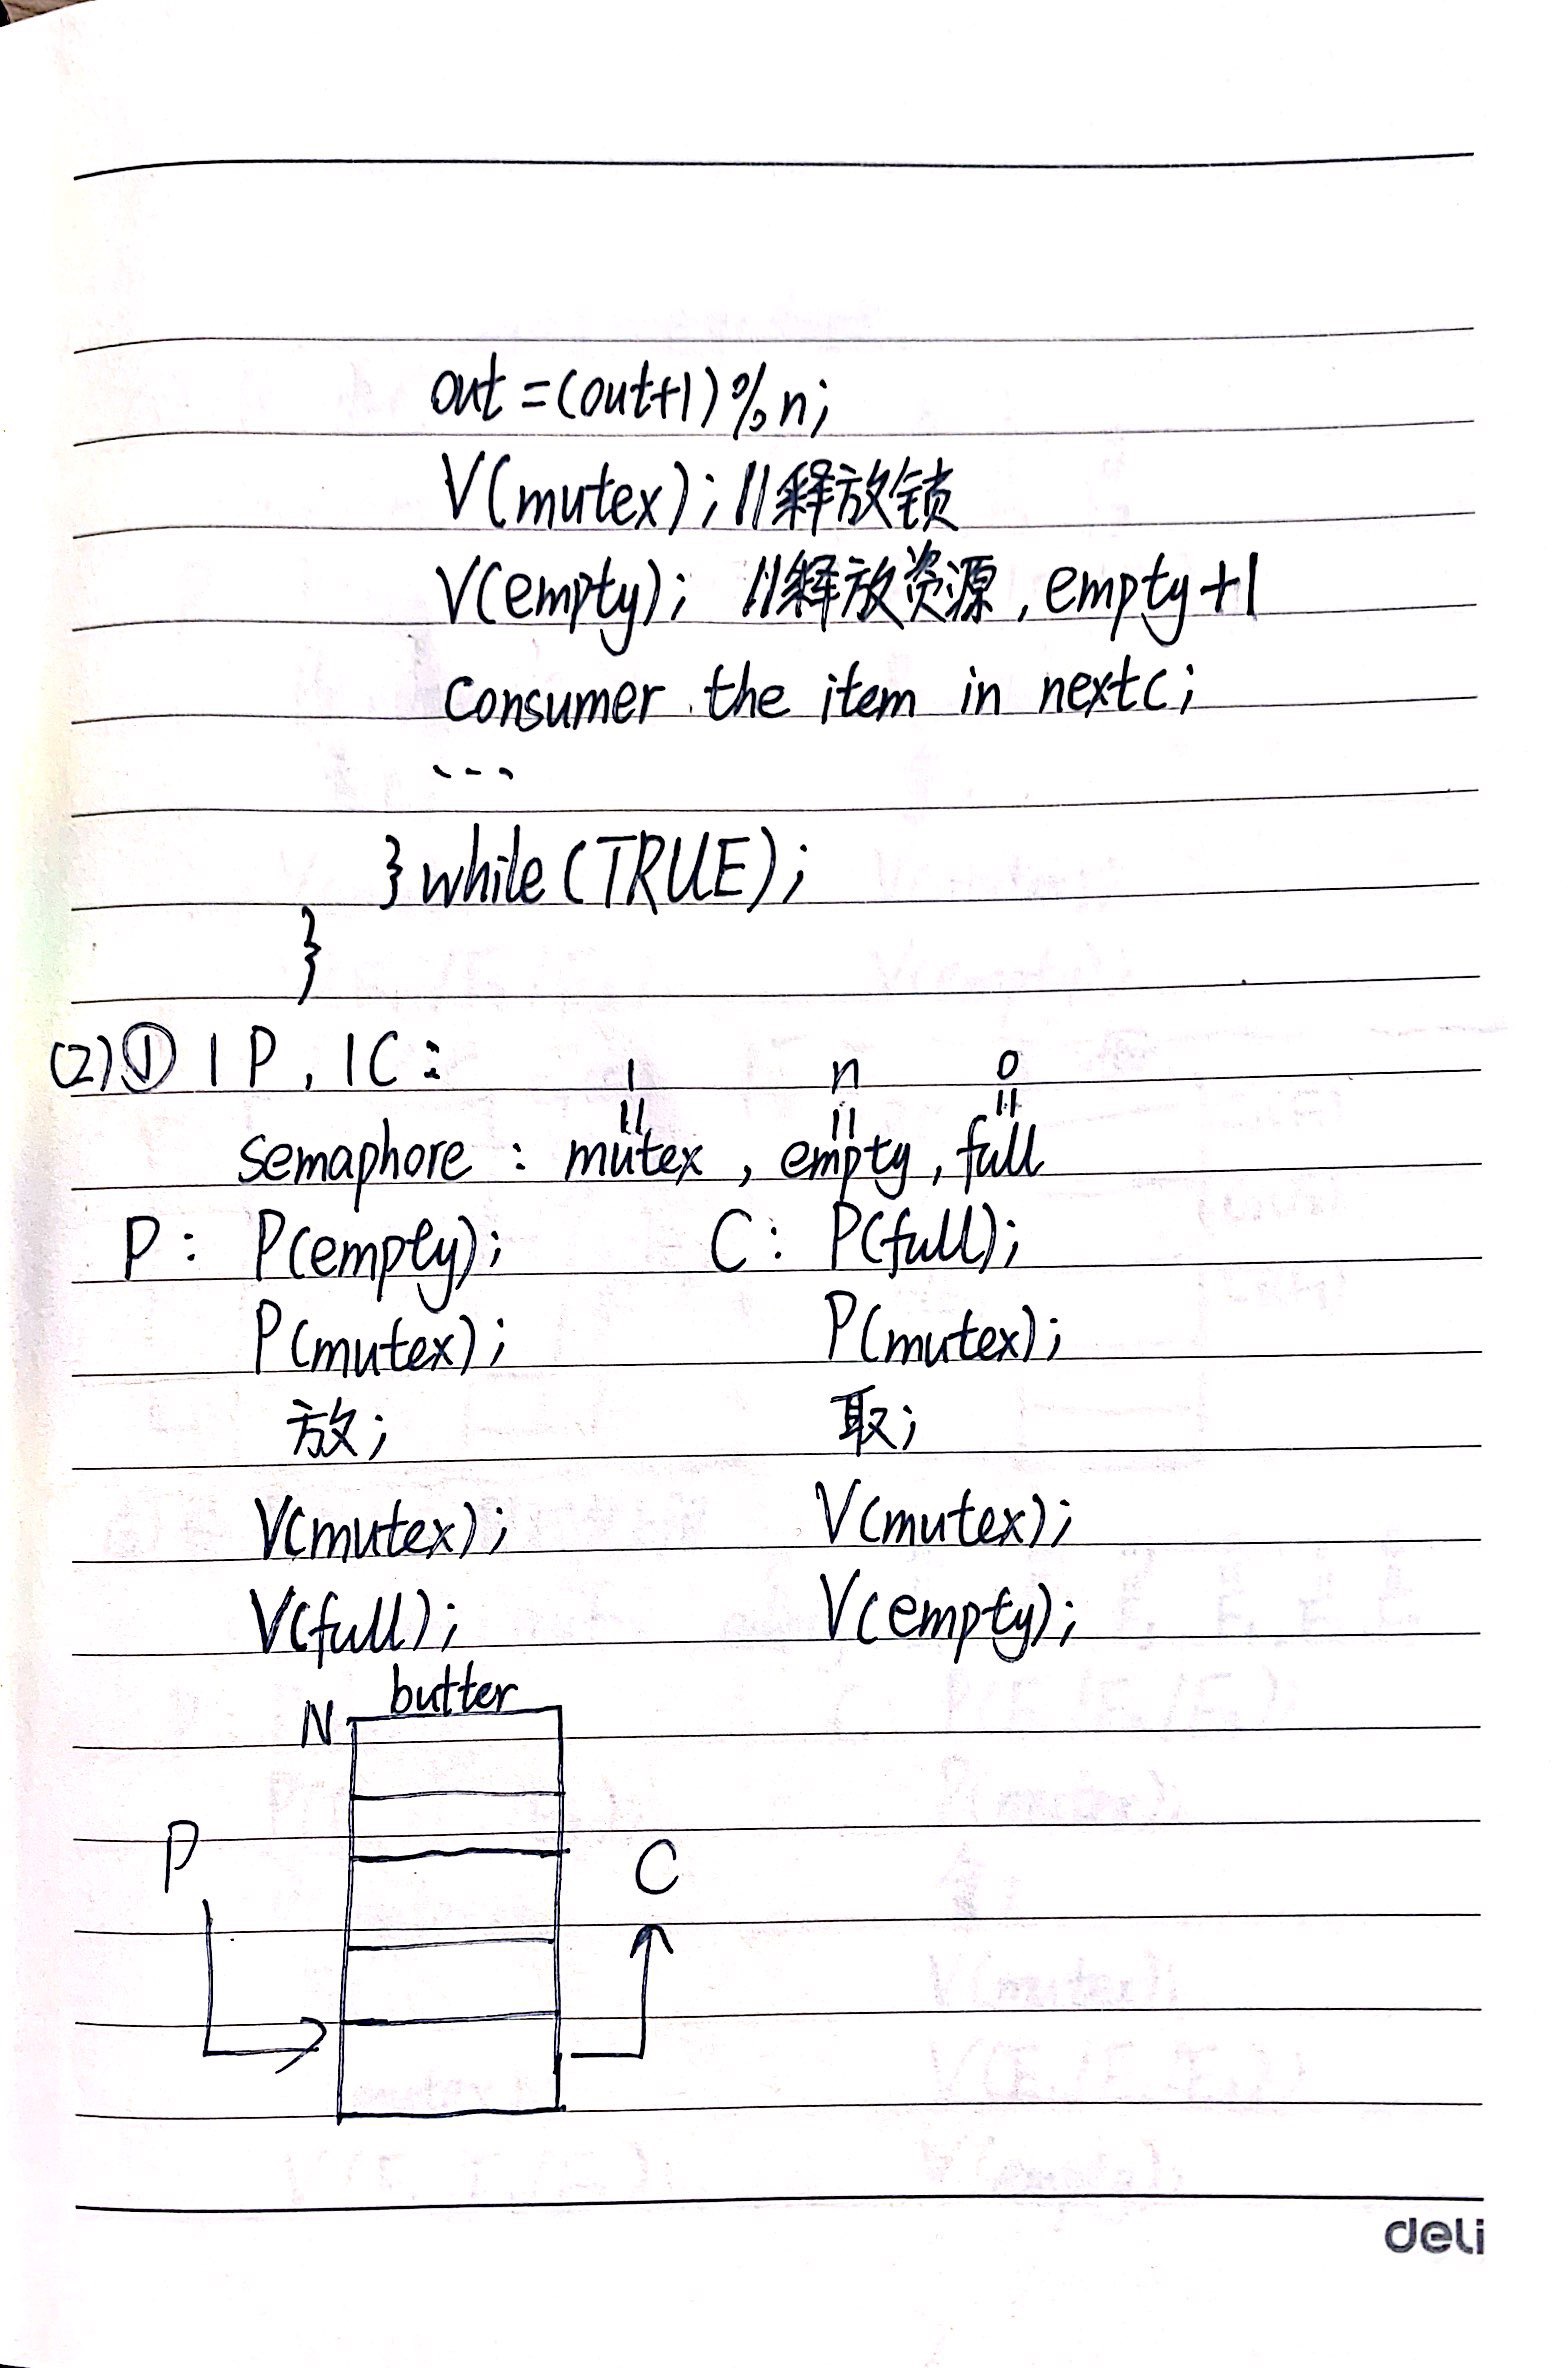 out=(out+1)%n;
V(mutex); //释放锁
V(empty); //释放资源,empty+1
consumer the item in nextc;
...
}while(TRUE);
}
(2)① 1P,1C:
1 n 0
= = =
semaphore: mutex, empty, full
P: P(empty); C: P(full);
P(mutex); P(mutex);
放; 取;
V(mutex); V(mutex);
V(full); V(empty);
N butter
P C
deli